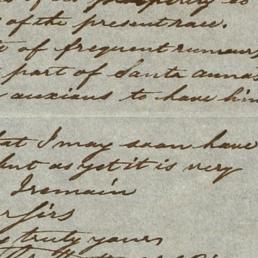 of the present race.
of frequent rumours
part of Santa Annas
anxious to have him
that I may soon have
but as yet it is very
I remain
Sirs
truly yours